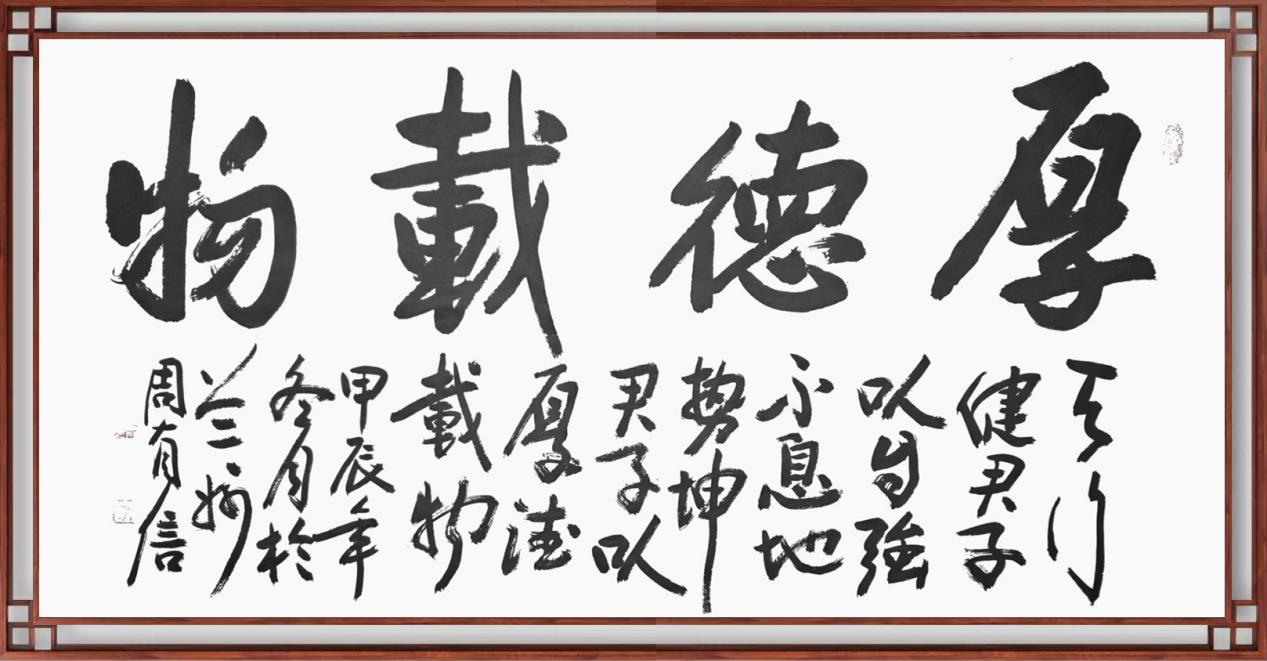 厚德載物
天行
健君子
以自強
不息地
势坤
君子以
厚德
載物
甲辰年
冬月於
兰州
周有信